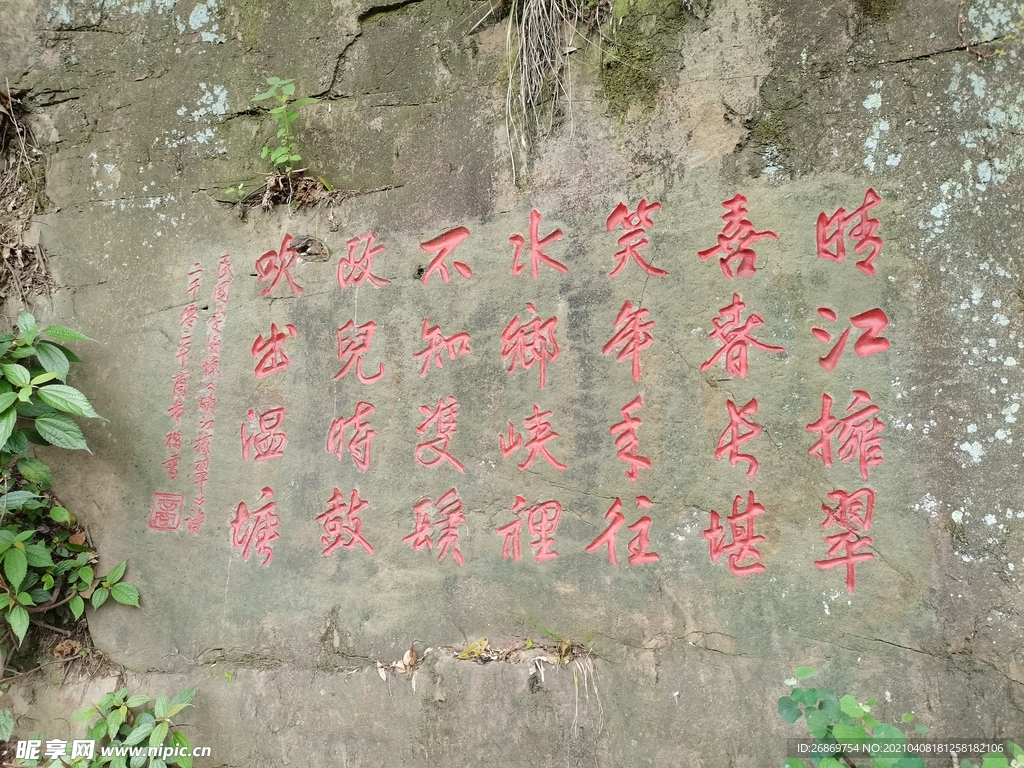 晴江擁翠
喜春长堪
笑年年往
水鄉峡裡
不知雙鬂
故兒時鼓
吹出温塘
昵享网 www.nipic.cn
ID:26869754 NO:20210408181258182106